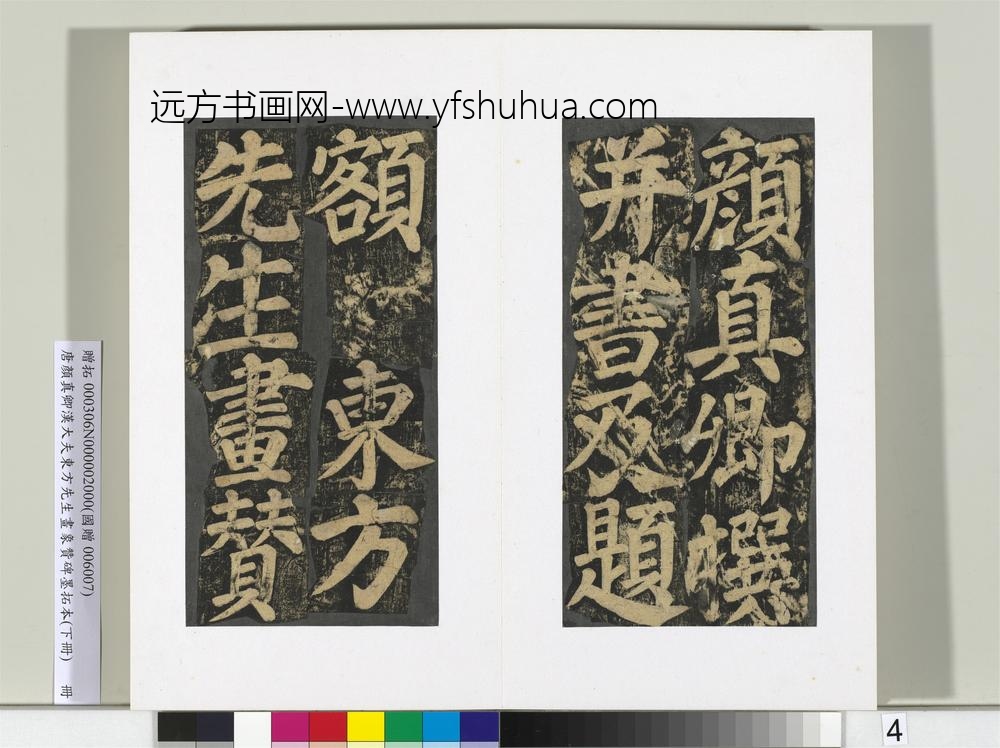 远方书画网-www.yfshuhua.com
顏真卿撰
并書及題
額東方
先生畫贊
贈拓 000306N000002000(國贈 006007)
唐顏真卿漢大夫東方先生畫象贊碑墨拓本(下冊) 冊
4